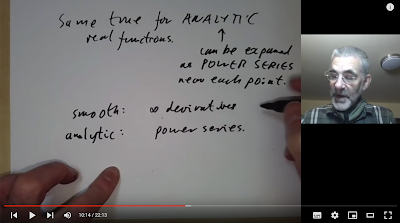 Same true for ANALYTIC
real functions.
↑
can be expanded
as POWER SERIES
near each point.
smooth: ∞ derivatives
analytic: power series.
10:14 / 22:13